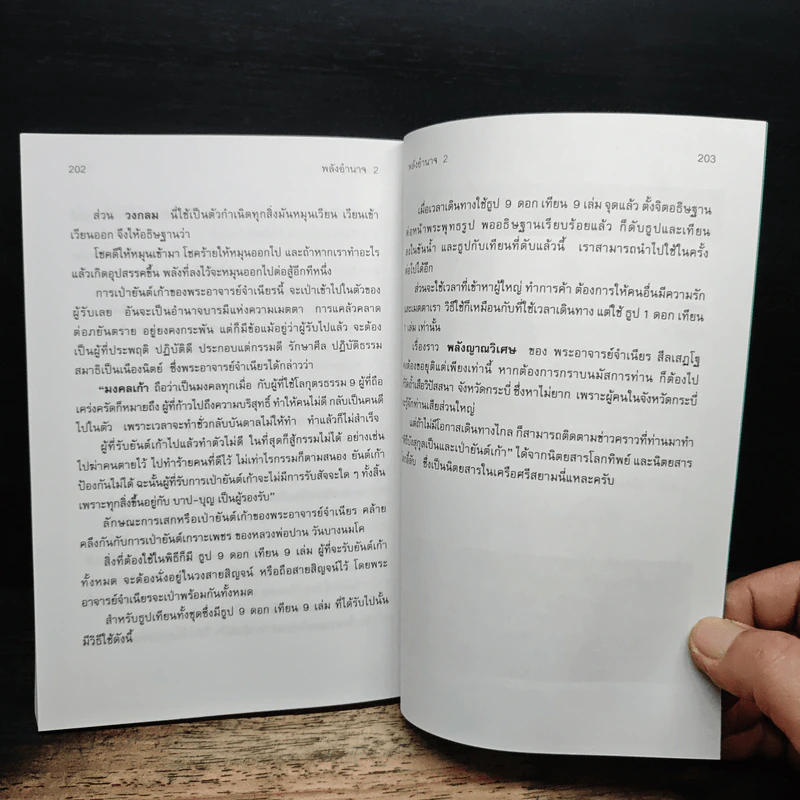 202
พลังอำนาจ 2
ส่วน วงกลม นี่ใช้เป็นตัวกำเนิดทุกสิ่งมันหมุนเวียน เวียนเข้า
เวียนออก จึงให้อธิษฐานว่า
โชคดีให้หมุนเข้ามา โชคร้ายให้หมุนออกไป และถ้าหากเราทำอะไร
แล้วเกิดอุปสรรคขึ้น พลังที่ลงไว้จะหมุนออกไปต่อสู้อีกทีหนึ่ง
การเป่ายันต์เก้าของพระอาจารย์จำเนียรนี้ จะเป่าเข้าไปในตัวของ
ผู้รับเลย อันจะเป็นอำนาจบารมีแห่งความเมตตา การแคล้วคลาด
ต่อภยันตราย อยู่ยงคงกระพัน แต่ก็มีข้อแม้อยู่ว่าผู้รับไปแล้ว จะต้อง
เป็นผู้ที่ประพฤติ ปฏิบัติดี ประกอบแต่กรรมดี รักษาศีล ปฏิบัติธรรม
สมาธิเป็นเนืองนิตย์ ซึ่งพระอาจารย์จำเนียรได้กล่าวว่า
"มงคลเก้า ถือว่าเป็นมงคลทุกเมื่อ กับผู้ที่ใช้โลกุตรธรรม 9 ผู้ที่ถือ
เคร่งครัดก็หมายถึง ผู้ที่ก้าวไปถึงความบริสุทธิ์ ทำให้คนไม่ดี กลับเป็นคนดี
ไปในตัว เพราะเวลาจะทำชั่วกลับบันดาลไม่ให้ทำ ทำแล้วก็ไม่สำเร็จ
ผู้ที่รับยันต์เก้าไปแล้วทำตัวไม่ดี ในที่สุดก็สู้กรรมไม่ได้ อย่างเช่น
ไปฆ่าคนตายไว้ ไปทำร้ายคนที่ดีไว้ ไม่เท่าไรกรรมก็ตามสนอง ยันต์เก้า
ป้องกันไม่ได้ ฉะนั้นผู้ที่รับการเป่ายันต์เก้าจะไม่มีการรับสัจจะใด ๆ ทั้งสิ้น
เพราะทุกสิ่งขึ้นอยู่กับ บาป-บุญ เป็นผู้รองรับ"
ลักษณะการเสกหรือเป่ายันต์เก้าของพระอาจารย์จำเนียร คล้าย
คลึงกันกับการเป่ายันต์เกราะเพชร ของหลวงพ่อปาน วัดบางนมโค
สิ่งที่ต้องใช้ในพิธีก็มี ธูป 9 ดอก เทียน 9 เล่ม ผู้ที่จะรับยันต์เก้า
ทั้งหมด จะต้องนั่งอยู่ในวงสายสิญจน์ หรือถือสายสิญจน์ไว้ โดยพระ
อาจารย์จำเนียรจะเป่าพร้อมกันทั้งหมด
สำหรับธูปเทียนทั้งชุดซึ่งมีธูป 9 ดอก เทียน 9 เล่ม ที่ได้รับไปนั้น
มีวิธีใช้ดังนี้
พลังอำนาจ 2
203
เมื่อเวลาเดินทางใช้ธูป 9 ดอก เทียน 9 เล่ม จุดแล้ว ตั้งจิตอธิษฐาน
ต่อหน้าพระพุทธรูป พออธิษฐานเรียบร้อยแล้ว ก็ดับธูปและเทียน
ลงในขันน้ำ และธูปกับเทียนที่ดับแล้วนี้ เราสามารถนำไปใช้ในครั้ง
ต่อไปได้อีก
ส่วนจะใช้เวลาที่เข้าหาผู้ใหญ่ ทำการค้า ต้องการให้คนอื่นมีความรัก
และเมตตาเรา วิธีใช้ก็เหมือนกับที่ใช้เวลาเดินทาง แต่ใช้ ธูป 1 ดอก เทียน
1 เล่มเท่านั้น
เรื่องราว พลังญาณวิเศษ ของ พระอาจารย์จำเนียร สีลเสฏโฐ
ต้องขอยุติแต่เพียงเท่านี้ หากต้องการกราบนมัสการท่าน ก็ต้องไป
วัดถ้ำเสือวิปัสสนา จังหวัดกระบี่ ซึ่งหาไม่ยาก เพราะผู้คนในจังหวัดกระบี่
จะรู้จักท่านเสียส่วนใหญ่
แต่ถ้าไม่มีโอกาสเดินทางไกล ก็สามารถติดตามข่าวคราวที่ท่านมาทำ
เป็นและเป่ายันต์เก้า" ได้จากนิตยสารโลกทิพย์ และนิตยสาร
ซึ่งเป็นนิตยสารในเครือศรีสยามนี่แหละครับ